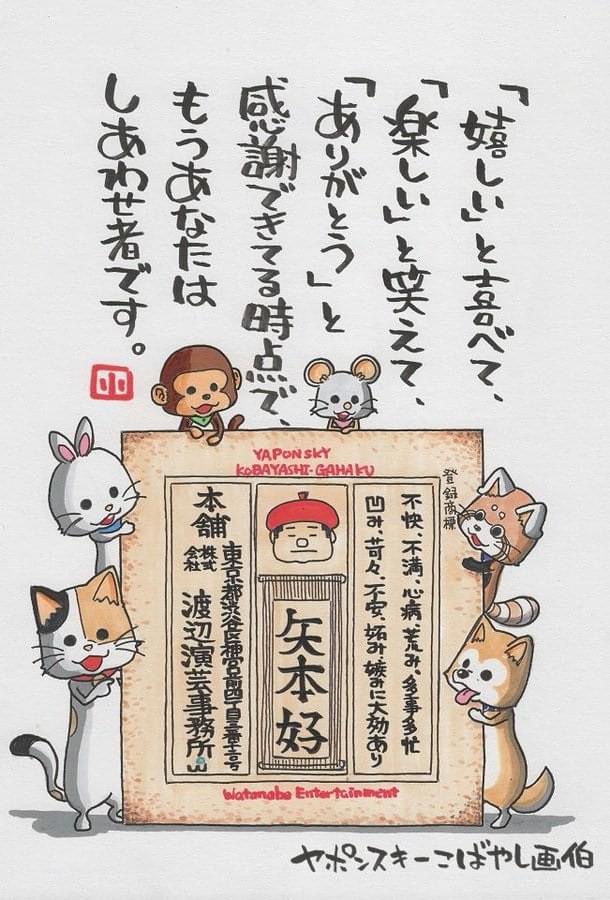 「嬉しい」と喜べて、
「楽しい」と笑えて、
「ありがとう」と
感謝できてる時点で、
もうあなたは
しあわせ者です。
小
YAPONSKY
KOBAYASHI-GAHAKU
登録商標
不快、不満、心病、荒み、多事多忙
凹み、苛々、不安、妬み嫉みに大効あり
矢本好
東京都渋谷区神宮前四丁目二番十二号
本舗 株式会社 渡辺演芸事務所
Watanabe Entertainment
ヤポンスキーこばやし画伯